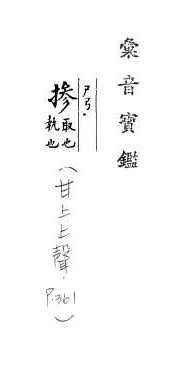 彙音寶鑑
ㄕㄢˇ
摻
取也
執也
(甘上上聲, P.361)